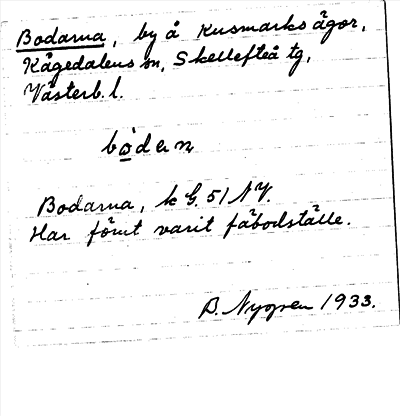 Bodarna, by å Kusmarks ägor,
Kågedalens sn, Skellefteå tg,
Västerb. l.
bòdan
Bodarna, k G. 51 NV.
Har förut varit fäbodställe.
B. Nygren 1933.